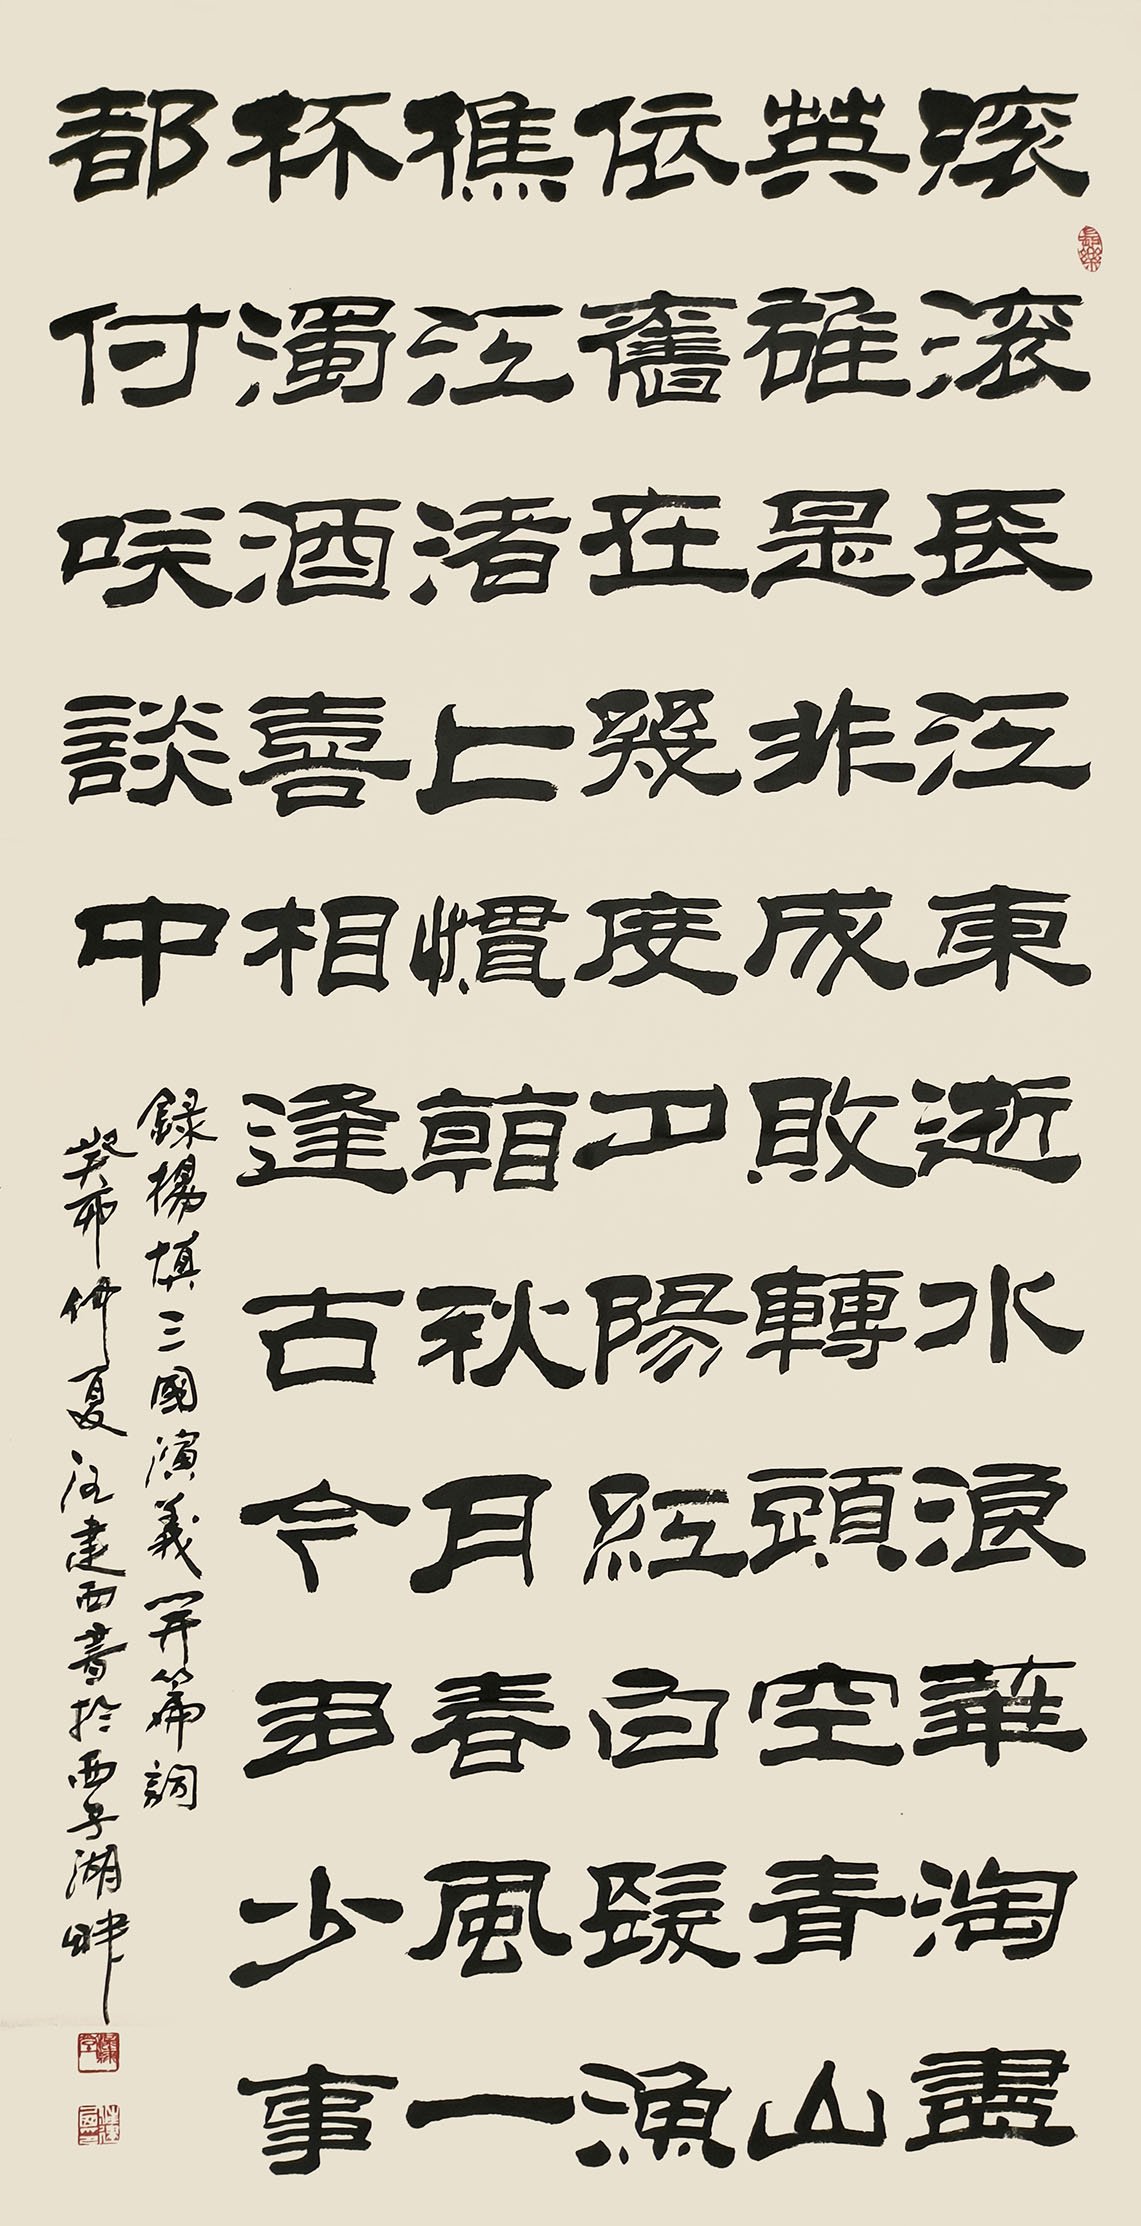 滚滚長江東逝水浪華淘盡
英雄是非成敗轉頭空青山
依舊在幾度夕陽紅白髮漁
樵江渚上慣看秋月春風一
杯濁酒喜相逢古今多少事
都付咲談中
録楊慎三國演義開篇詞
癸卯仲夏汪建西書於西子湖畔
長樂